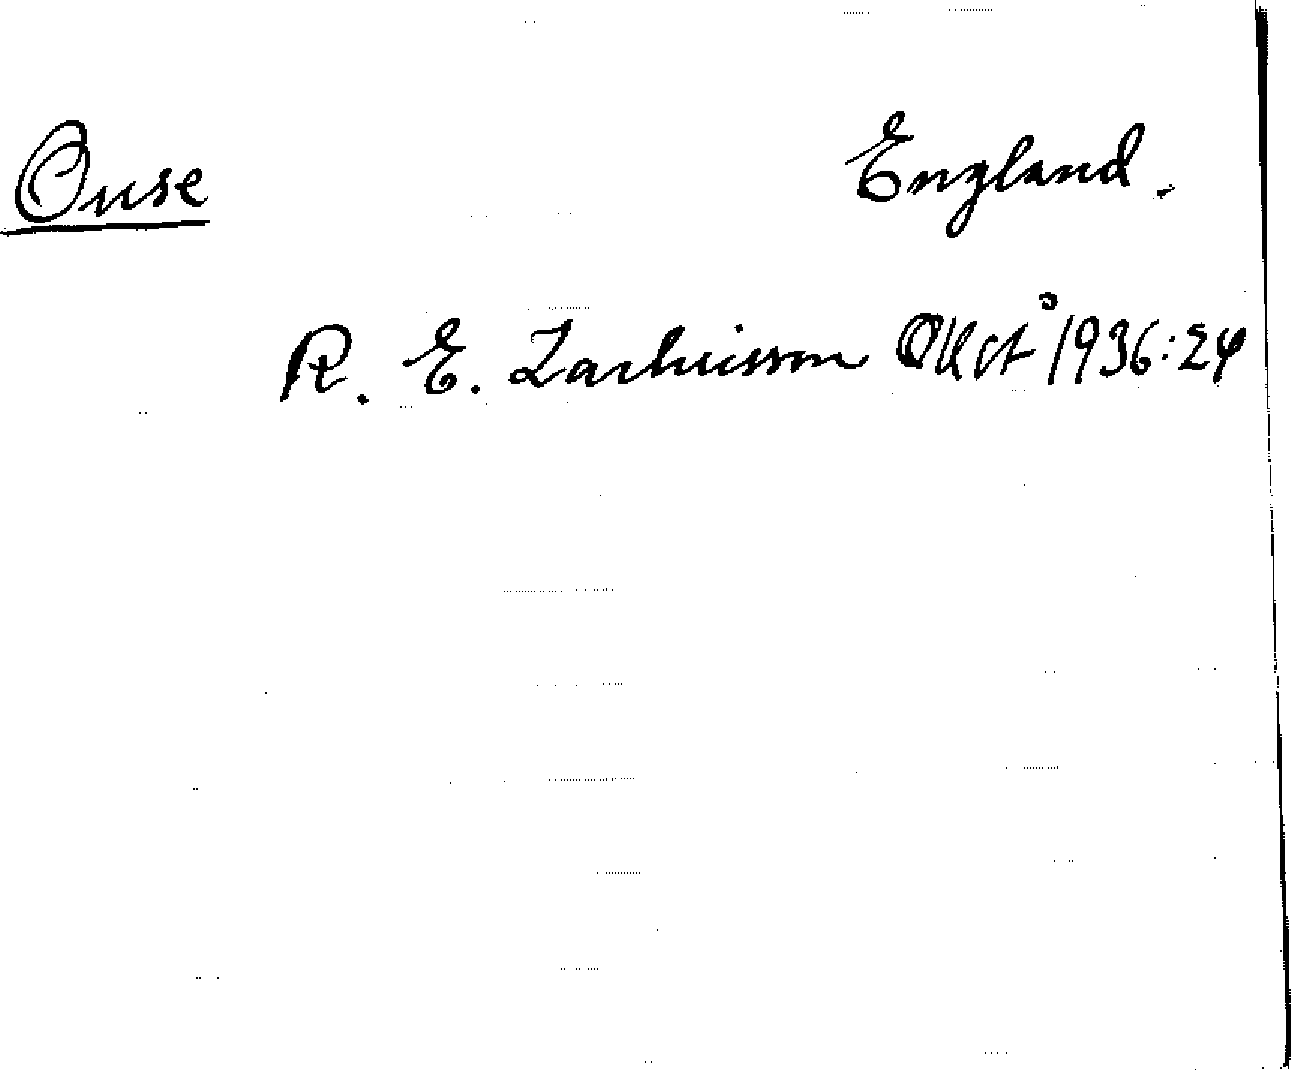 Ouse England.
R. E. Zachrisson OUÅ 1936:24